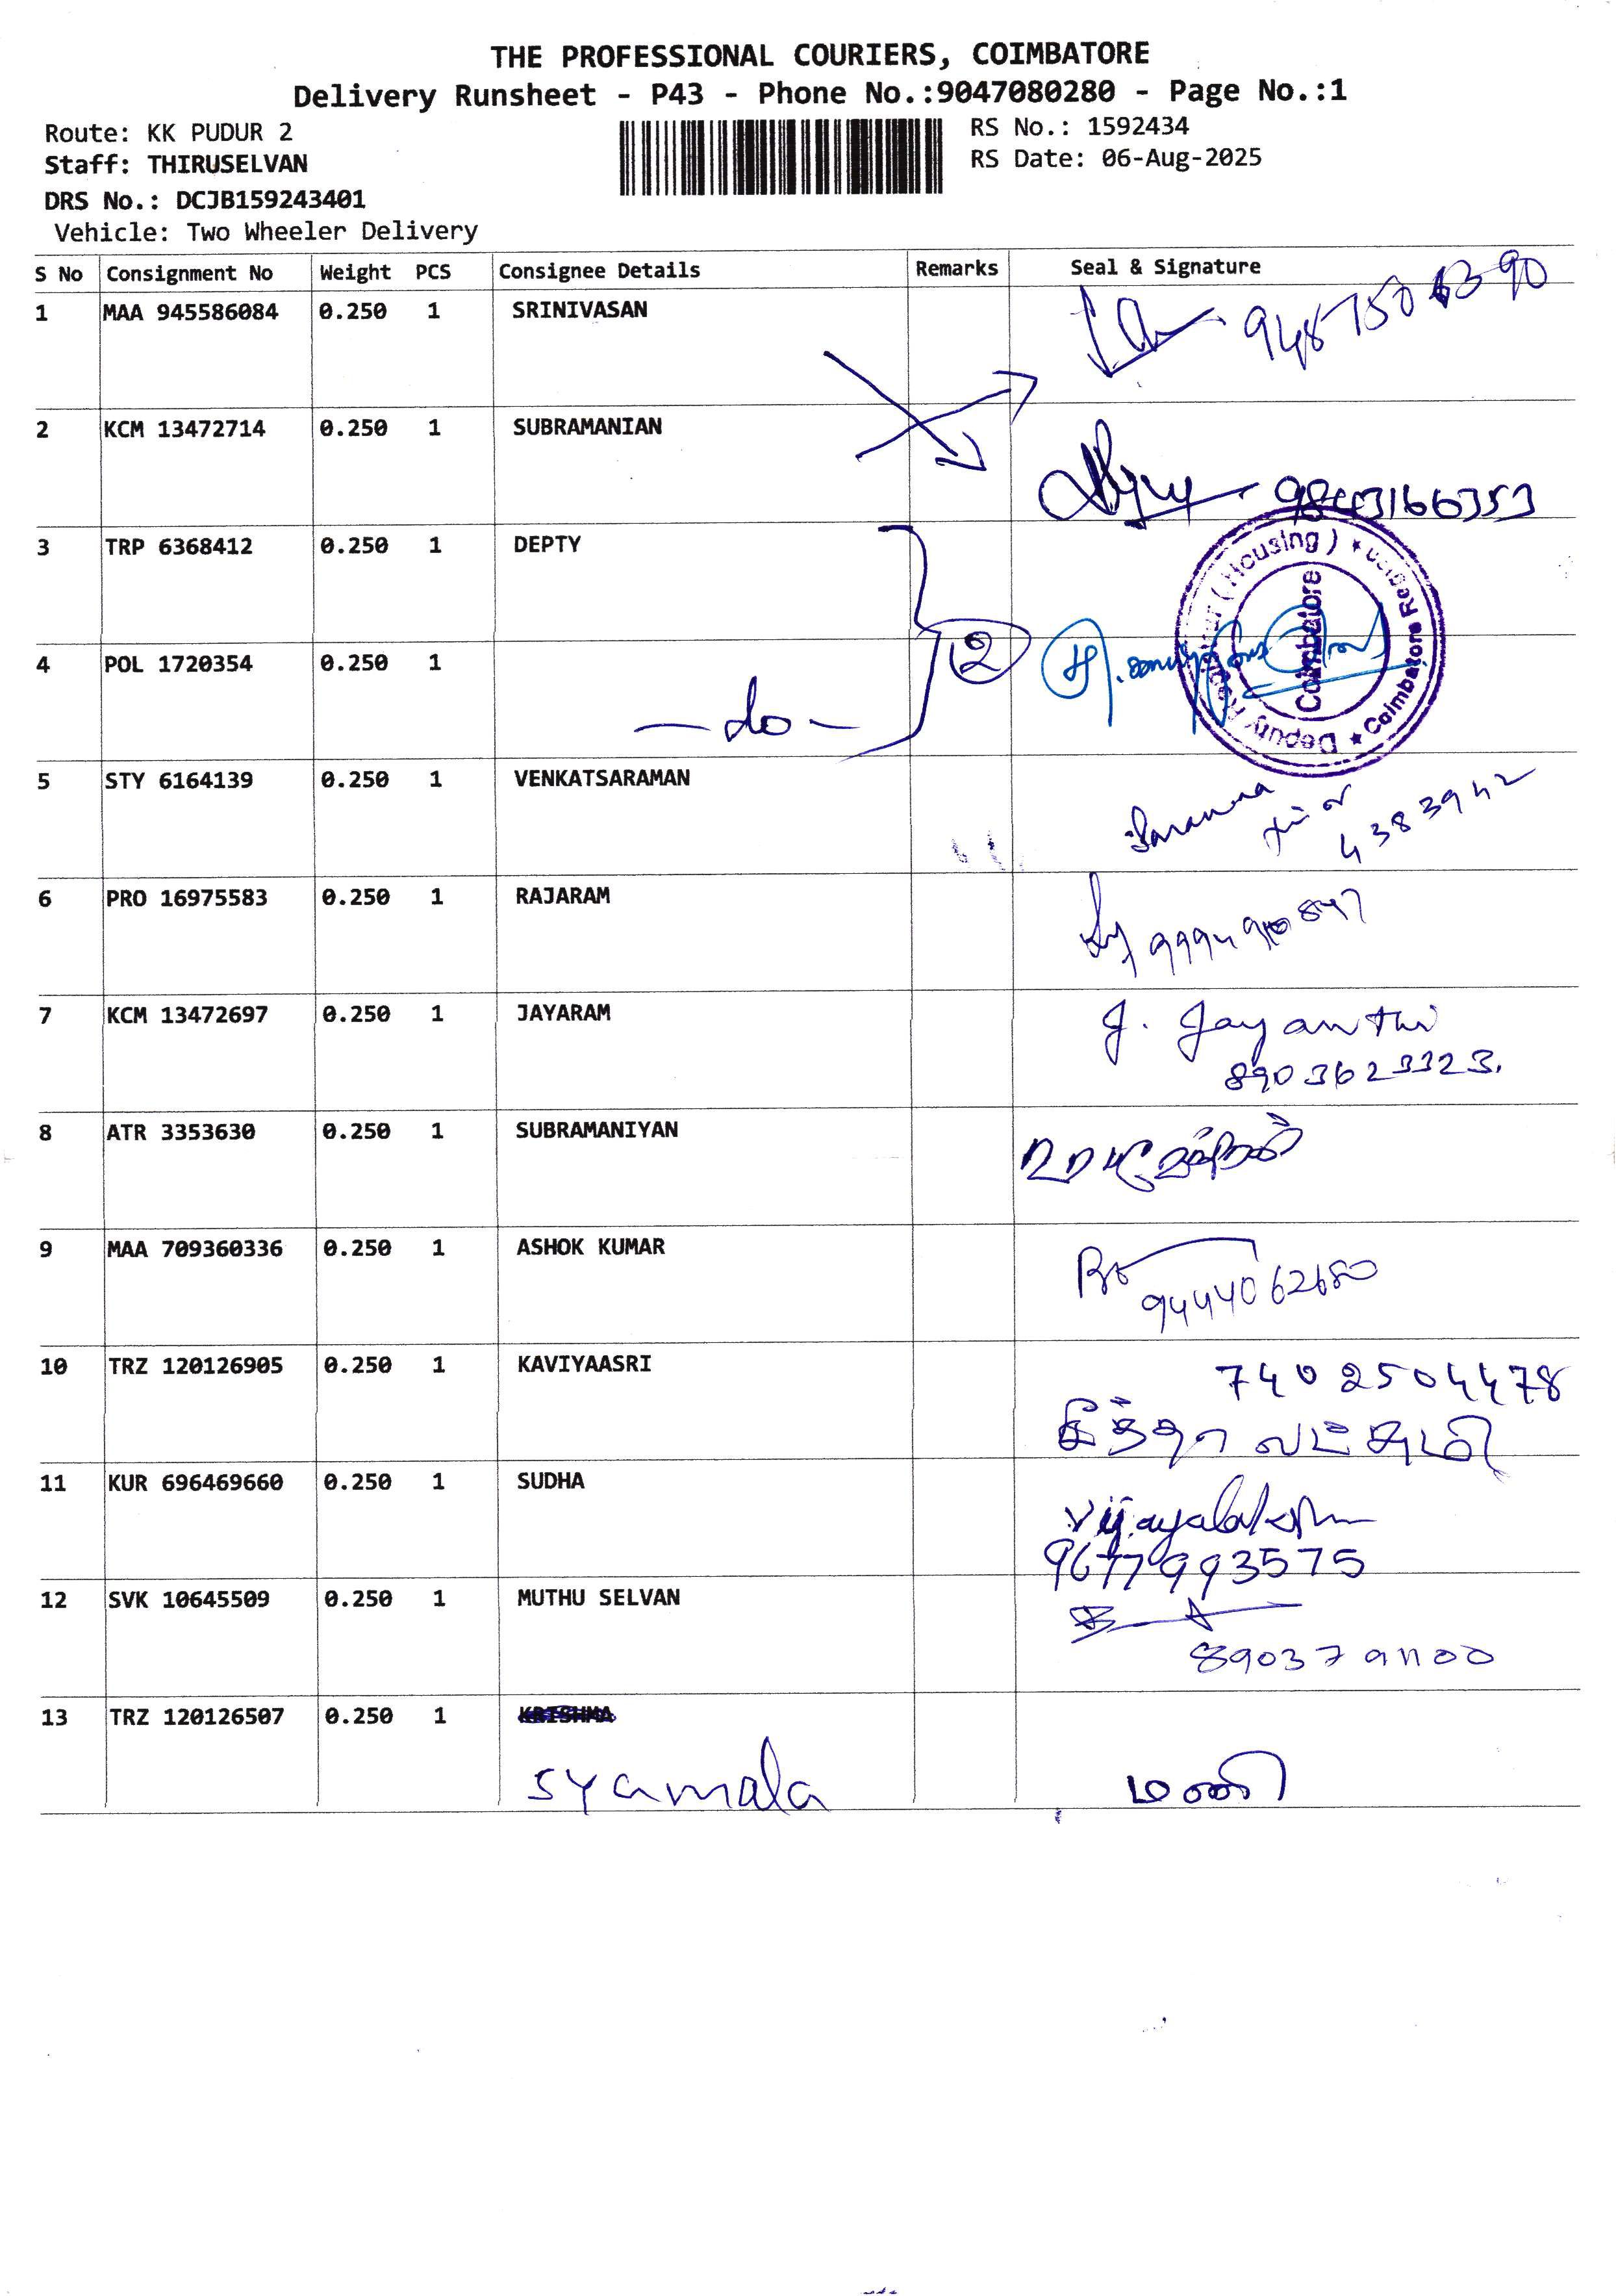 THE PROFESSIONAL COURIERS, COIMBATORE
Delivery Runsheet - P43 - Phone No.:9047080280 - Page No.:1
Route: KK PUDUR 2
Staff: THIRUSELVAN
DRS No.: DCJB159243401
Vehicle: Two Wheeler Delivery
RS No.: 1592434
RS Date: 06-Aug-2025
S No Consignment No Weight PCS Consignee Details Remarks Seal & Signature
1 MAA 945586084 0.250 1 SRINIVASAN
2 KCM 13472714 0.250 1 SUBRAMANIAN
9843166353
3 TRP 6368412 0.250 1 DEPTY
4 POL 1720354 0.250 1
- do - 2
Deputy (Housing) * Coimbatore Region *
Coimbatore
5 STY 6164139 0.250 1 VENKATSARAMAN
4383942
6 PRO 16975583 0.250 1 RAJARAM
7 KCM 13472697 0.250 1 JAYARAM J. Jayanthi
8903623323.
8 ATR 3353630 0.250 1 SUBRAMANIYAN
9 MAA 709360336 0.250 1 ASHOK KUMAR
9444062680
10 TRZ 120126905 0.250 1 KAVIYAASRI 7402504478
11 KUR 696469660 0.250 1 SUDHA Vijayalakshmi
9677993575
12 SVK 10645509 0.250 1 MUTHU SELVAN
8903791100
13 TRZ 120126507 0.250 1 KRISHNA
syamala மணி